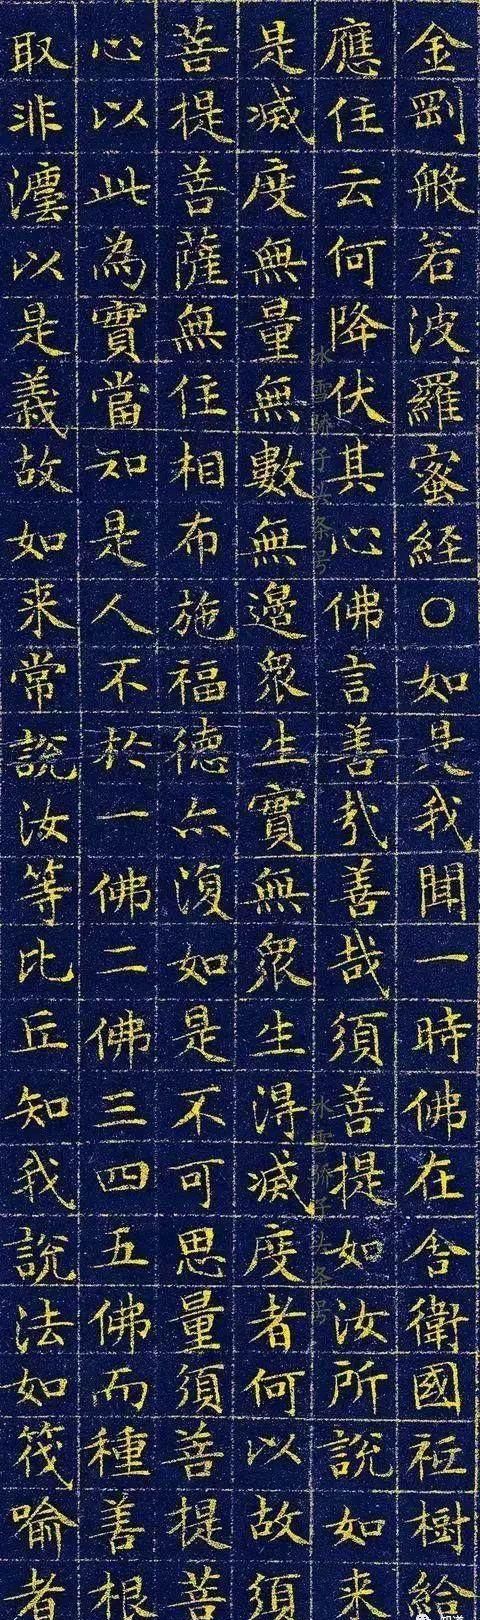 金剛般若波羅蜜経〇如是我聞一時佛在舍衛國祇樹給
應住云何降伏其心佛言善哉善哉須菩提如汝所說如来
是滅度無量無數無邊眾生實無眾生得滅度者何以故須
菩提菩薩無住相布施福德亦復如是不可思量須菩提菩
心以此為實當知是人不於一佛二佛三四五佛而種善根
取非灋以是義故如来常說汝等比丘知我說法如筏喻者
冰雪骄子头条号
冰雪骄子头条号